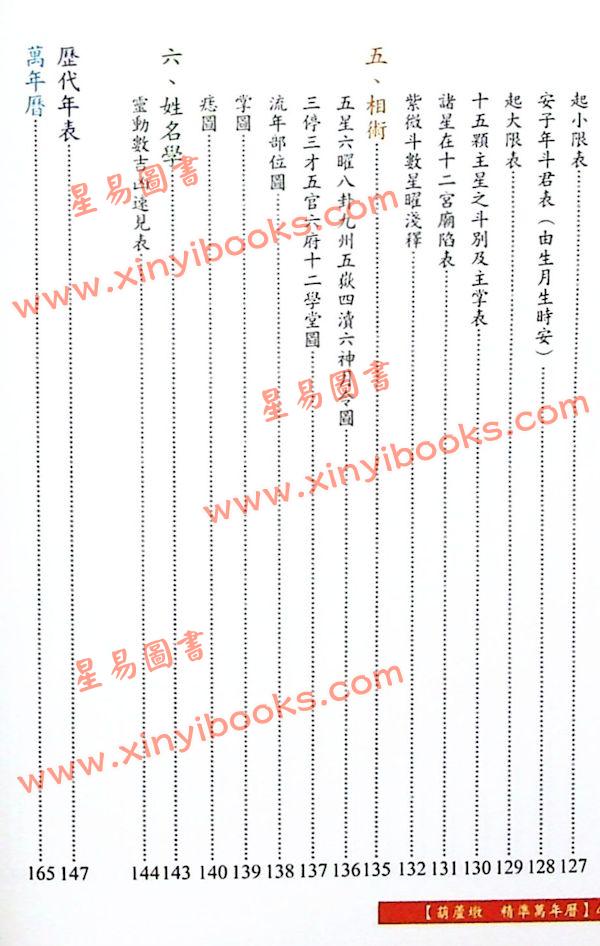 起小限表 127
安子年斗君表（由生月生時安） 128
起大限表 129
十五顆主星之斗別及主掌表 130
諸星在十二宮廟陷表 131
紫微斗數星曜淺釋 132
五、相術 135
五星六曜八卦九州五嶽四瀆六神月令圖 136
三停三才五官六府十二學堂圖 137
流年部位圖 138
掌圖 139
痣圖 140
六、姓名學 143
靈動數吉凶速見表 144
歷代年表 147
萬年曆 165
【葫蘆墩 精準萬年曆】4
星易圖書
www.xinyibooks.com
星易圖書
www.xinyibooks.com
星易圖書
www.xinyibooks.com